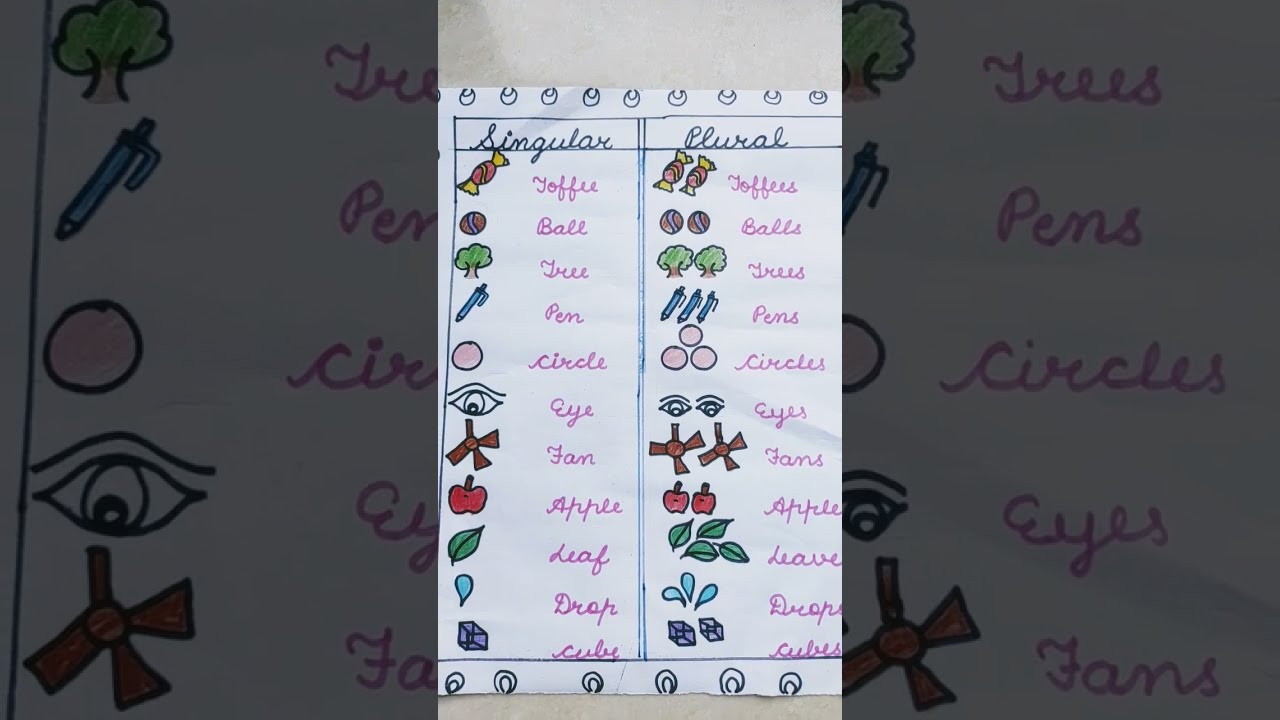 Singular Plural
Toffee Toffees
Ball Balls
Tree Trees
Pen Pens
Circle Circles
Eye Eyes
Fan Fans
Apple Apple
Leaf Leave
Drop Drops
Cube Cubes
Tre Trees
Pen Pens
Cir Circles
Ey Eyes
Fan Fans